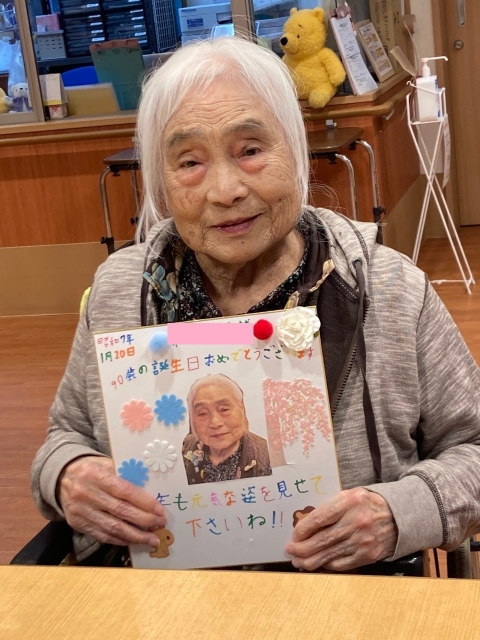 昭和7年
1月20日
90歳の誕生日おめでとうございます
年も元気な姿を見せて
下さいね!!